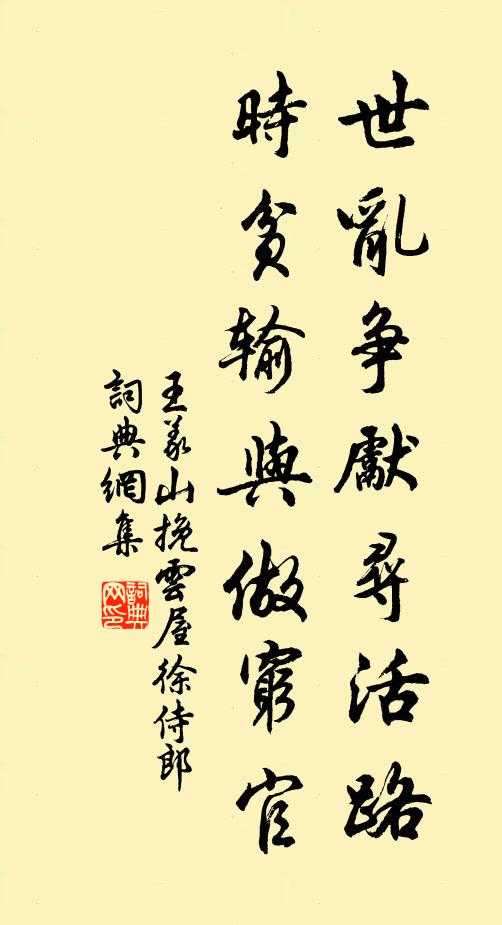 世亂争獻尋活路
時貧輸與做窮官
王義山挽雲屋徐侍郎
詞典網集
詞典网印